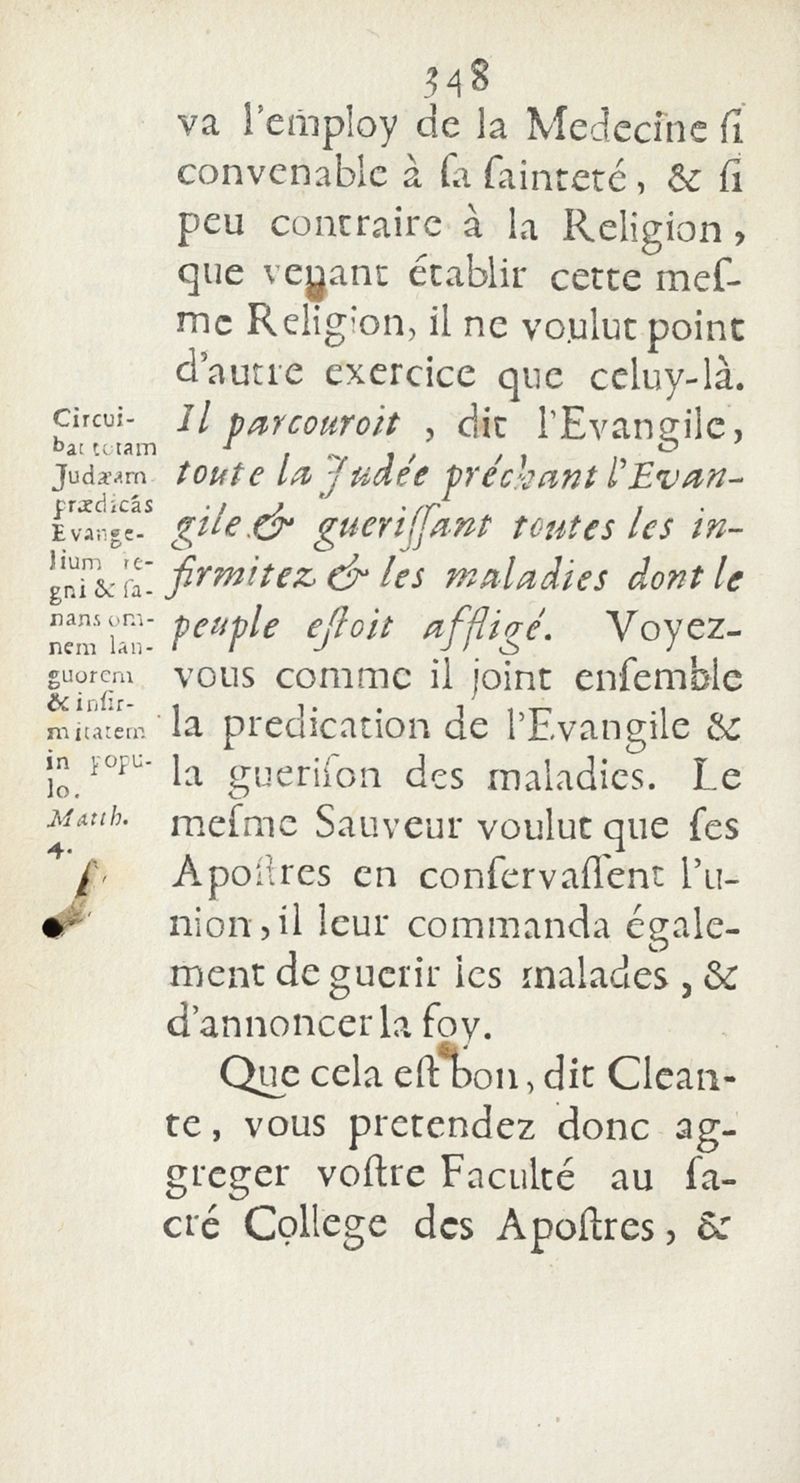 348
va l'employ de la Medecine ſi
convenable à ſa ſainteté, & ſi
peu contraire à la Religion,
que venant établir cette meſ-
me Religion, il ne voulut point
d'autre exercice que celuy-là.
Il parcouroit, dit l'Evangile,
toute la Judée préchant l'Evan-
gile & gueriſſant toutes les in-
firmitez & les maladies dont le
peuple eſtoit affligé. Voyez-
vous comme il joint enſemble
la predication de l'Evangile &
la gueriſon des maladies. Le
meſme Sauveur voulut que ſes
Apoſtres en conſervaſſent l'u-
nion, il leur commanda égale-
ment de guerir les malades, &
d'annoncer la foy.
Que cela eſt bon, dit Clean-
te, vous pretendez donc ag-
greger voſtre Faculté au ſa-
cré College des Apoſtres, &
Circui-
bat totam
Judæam
prædicãs
Evange-
lium re-
gni & ſa-
nans om-
nem lan-
guorem
& infir-
mitatem
in popu-
lo.
Matth.
4.